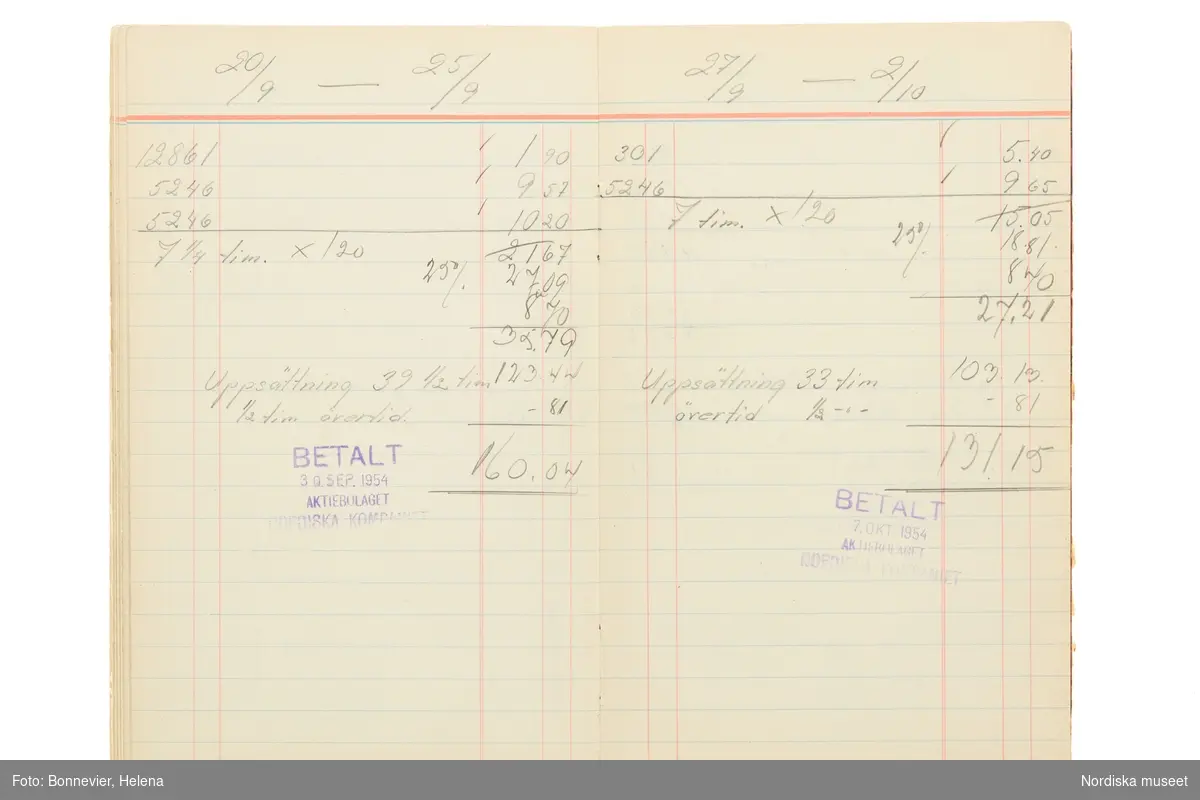 20/9 — 25/9
12861 1 90
5246 9 57
5246 10 20
7 1/4 tim. x 120 21 67
25% 27,09
8 70
35.79
Uppsättning 39 1/2 tim 123.44
1/2 tim övertid. - 81
160.04
BETALT
30. SEP. 1954
AKTIEBOLAGET
NORDISKA KOMPANIET
27/9 — 2/10
301 5.40
5246 9 65
7 tim. x 120 15.05
25% 18 81.
8 40
27.21
Uppsättning 33 tim 103.13.
övertid 1/2 -"- - 81
131.15
BETALT
7. OKT 1954
AKTIEBOLAGET
NORDISKA KOMPANIET
Foto: Bonnevier, Helena
Nordiska museet